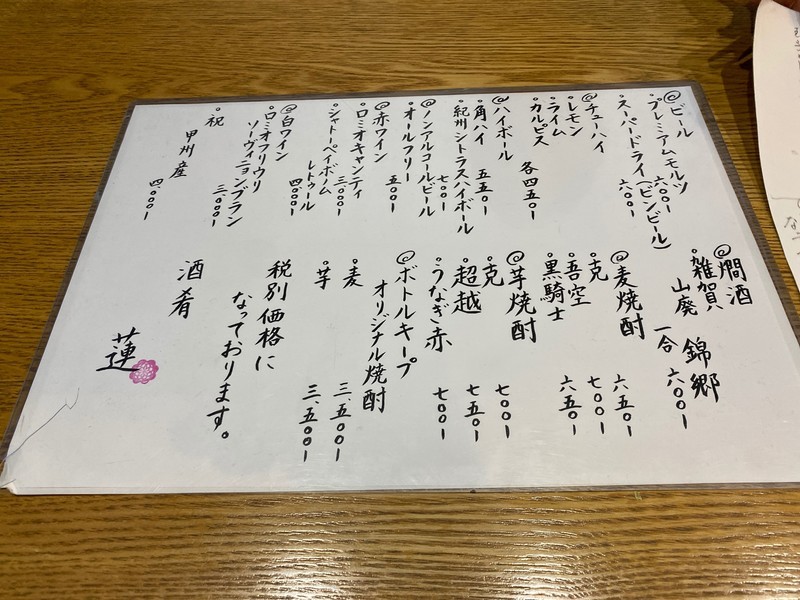 ◎ビール
・プレミアムモルツ
六〇〇ー
・スーパードライ(ビンビール)
六〇〇ー
◎チューハイ
・レモン
・ライム
・カルピス
各四五〇ー
◎ハイボール
・角ハイ 五五〇ー
・紀州シトラスハイボール
七〇〇ー
◎ノンアルコールビール
・オールフリー
五〇〇ー
◎赤ワイン
・ロミオキャンティ
三、〇〇〇ー
・シャトーペイボーム
レトゥール
四、〇〇〇ー
◎白ワイン
・ロミオフリウリ
ソーヴィニョンブラン
三、〇〇〇ー
・祝
甲州産
四、〇〇〇ー
◎燗酒
・雑賀 錦郷
山廃
一合 六〇〇ー
◎麦焼酎
・克 六五〇ー
・吾空 七〇〇ー
・黒騎士 六五〇ー
◎芋焼酎
・克 七〇〇ー
・超越 七五〇ー
・うなぎ赤 七〇〇ー
◎ボトルキープ
オリジナル焼酎
・麦 三、五〇〇ー
・芋 三、五〇〇ー
税別価格に
なっております。
酒肴
蓮